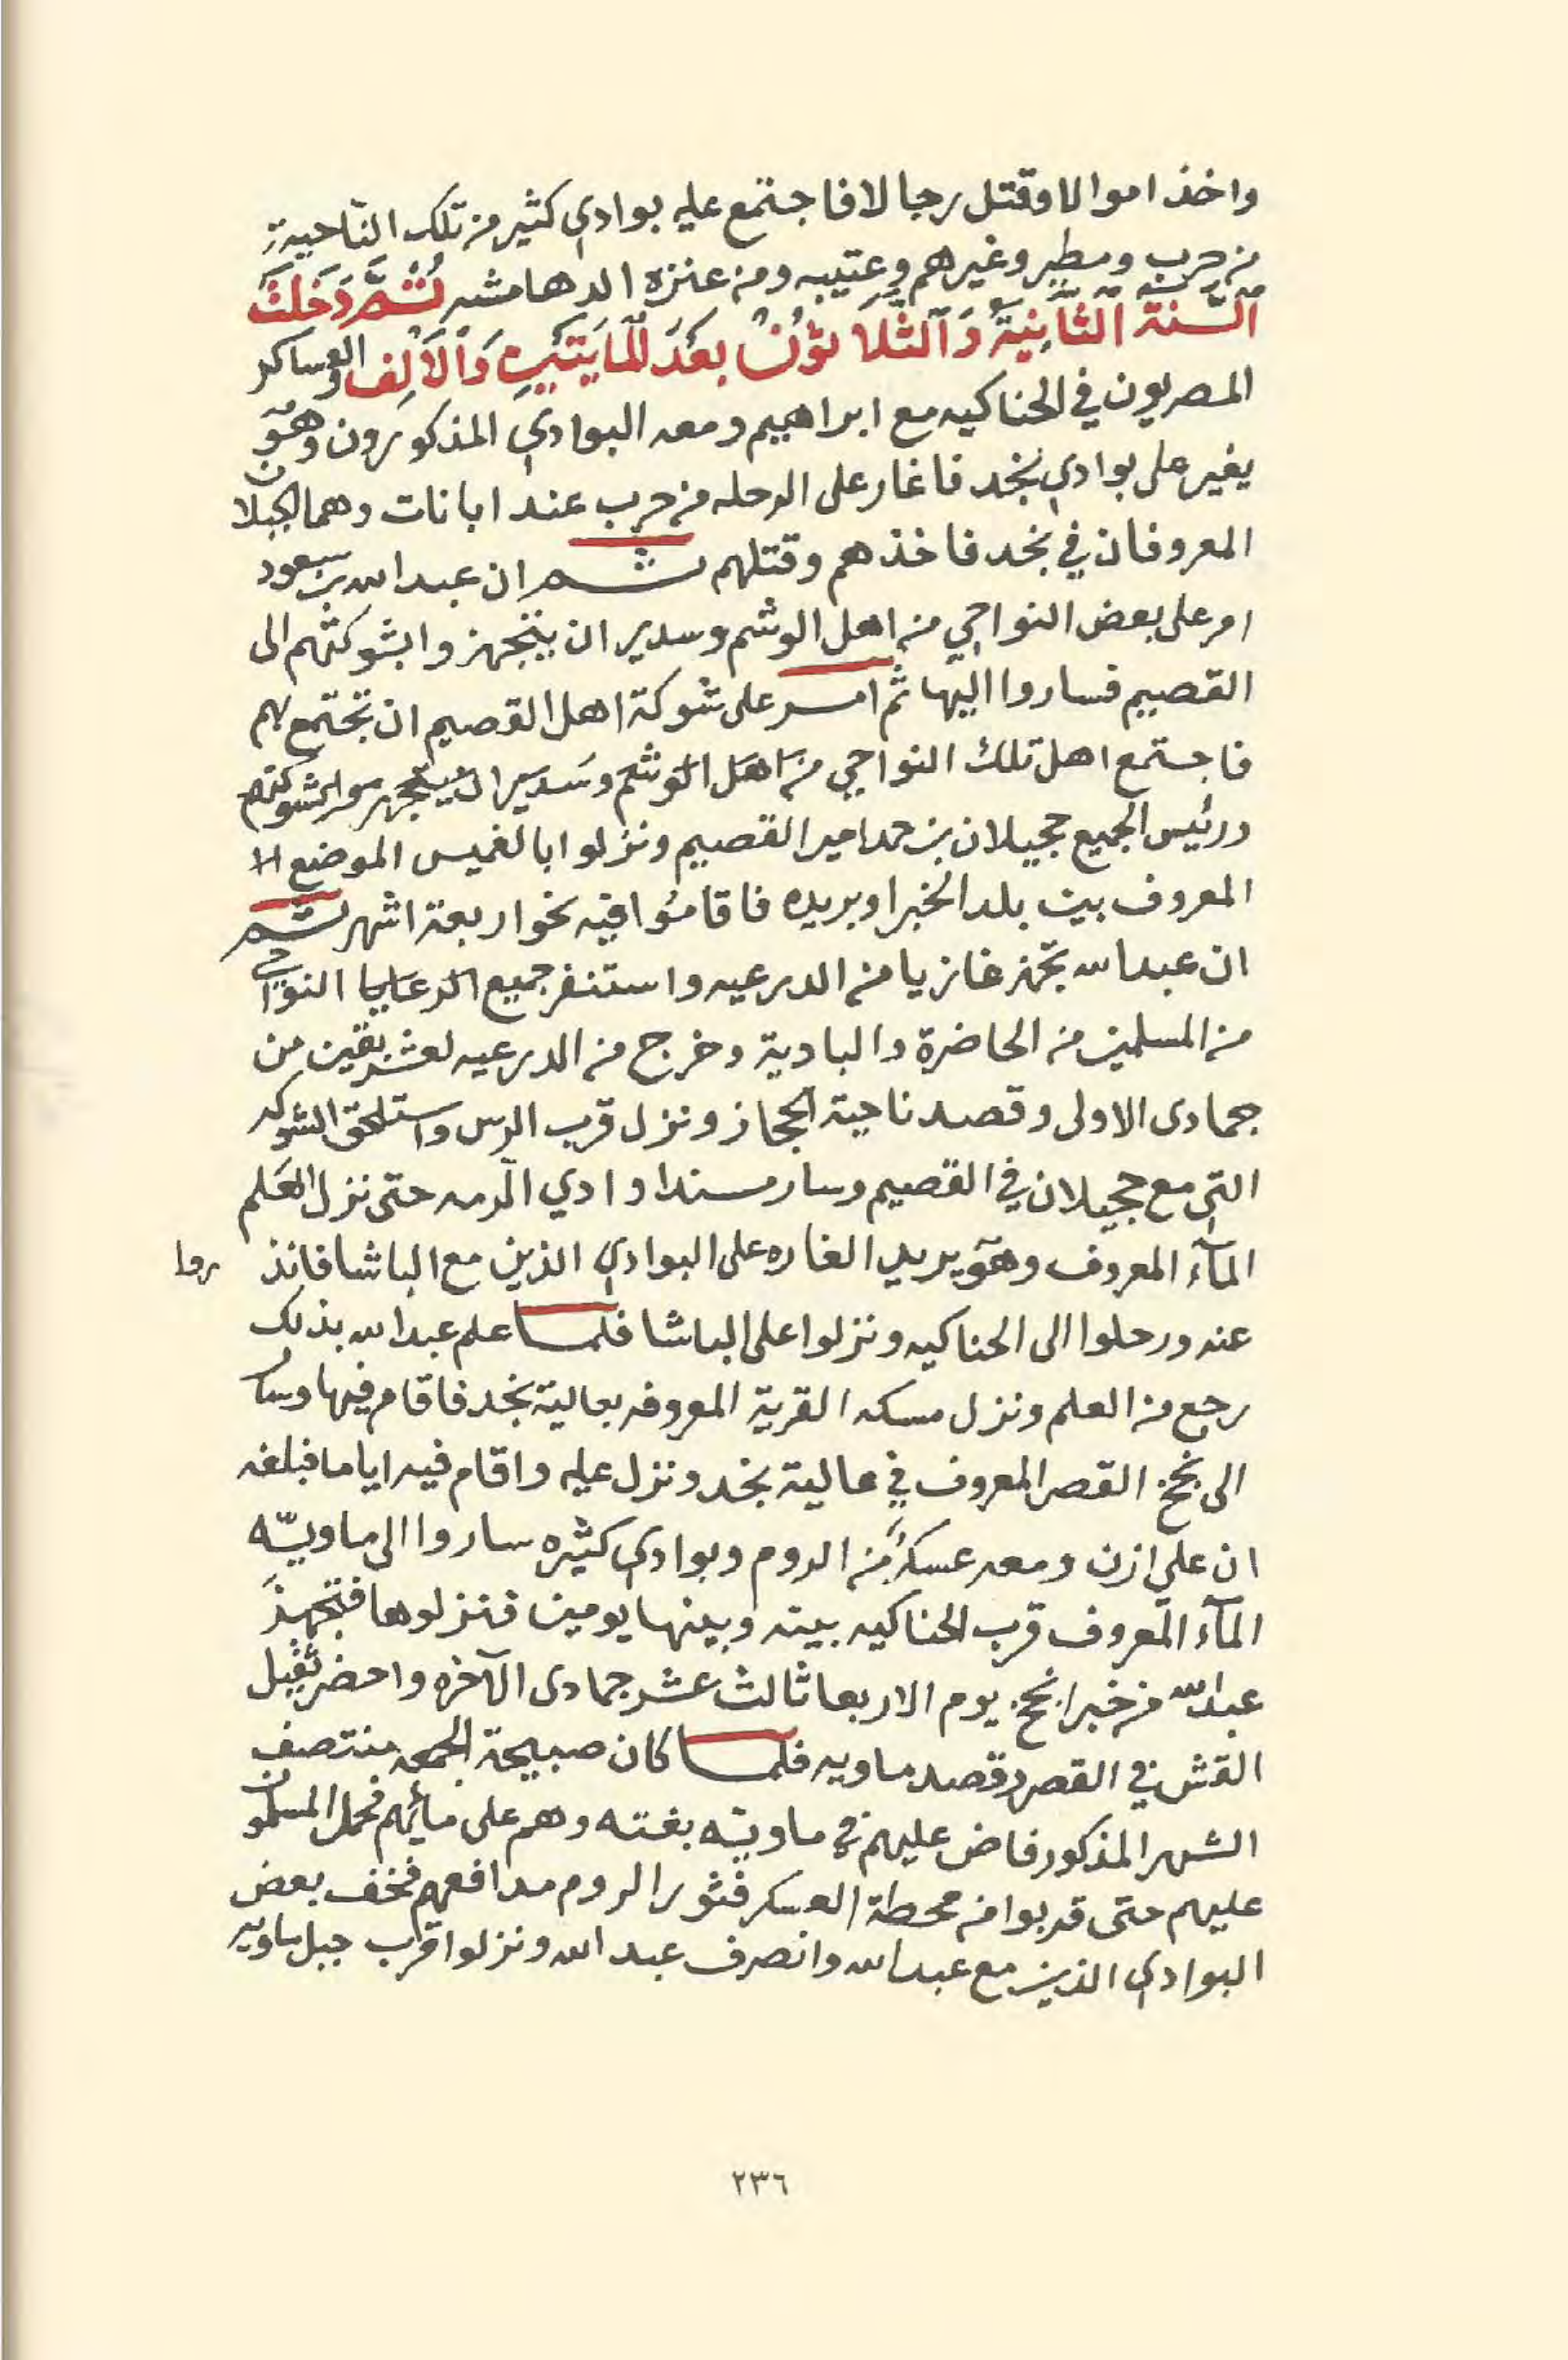 واخذ اموالا وقتل رجالا فاجتمع عليه بوادي كثير من تلك الناحية
من حرب ومطير وغيرهم وعتيبه ومن عنزه الدهامشه ثُمَّ دَخَلَتْ
اَلسَّنَةُ اَلثَّانِيَةُ وَاَلثَّلَاثُونْ بَعْدَ اَلْمَايَتَيْنِ وَاَلْاَلِفْ والعساكر
المصريون في الحناكيه مع ابراهيم ومعه البوادي المذكورون وهو
يغير على بوادي نجد فاغار على الرحله من حرب عند ابانات وهما الجبلان
المعروفان في نجد فاخذهم وقتلهم ثم ان عبدالله بن سعود
امر على بعض النواحي من اهل الوشم وسدير ان يتجهزوا بشوكتهم الى
القصيم فساروا اليها ثم امر على شوكة اهل القصيم ان تجتمع بهم
فاجتمع اهل تلك النواحي من اهل الوشم وسدير ان يتجهزوا بشوكتهم
ورئيس الجميع حجيلان بن حمد امير القصيم ونزلوا بالغميس الموضع الا
المعروف بين بلد الخبرا وبريده فاقاموا فيه نحو اربعة اشهر ثم
ان عبدالله تجهز غازيا من الدرعيه واستنفر جميع الرعايا النواحي
من المسلمين من الحاضرة والبادية وخرج من الدرعيه لعشر بقين من
جمادى الاولى وقصد ناحية الحجاز ونزل قرب الرس واستلحق الشوكه
التي مع حجيلان في القصيم وسار مسندا وادي الرمه حتى نزل العلم
المآء المعروف وهو يريد الغاره على البوادي الذين مع الباشا فانذ روا
عنه ورحلوا الى الحناكيه ونزلوا على الباشا فلما علم عبدالله بذلك
رجع من العلم ونزل مسكه القرية المعروفه بعالية نجد فاقام فيها وسار
الى نجخ القصر المعروف في عالية نجد ونزل عليه واقام فيه اياما فبلغه
ان علي ازن ومعه عسكر من الروم وبوادي كثيره ساروا الى ماويّه
المآء المعروف قرب الحناكيه بينه وبينها يومين فنزلوها فتجهز
عبدالله من خبرا نجخ يوم الاربعا ثالث عشر جمادى الآخره واحضر ثقيل
القش في القصر وقصد ماويه فلما كان صبيحة الجمعه منتصف
الشهر المذكور فاض عليهم في ماويّه بغته وهم على مائهم فحمل المسلمون
عليهم حتى قربوا من محطة العسكر فثور الروم مدافعهم فخف بعض
البوادي الذين مع عبدالله وانصرف عبد الله ونزلوا قرب جبل ماويه
٢٣٦